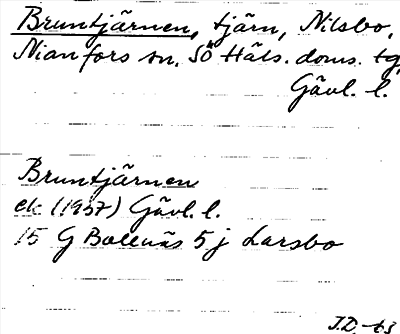 Bruntjärnen, tjärn, Nilsbo,
Nianfors sn. SÖ Häls. doms. tg,
Gävl. l.
Bruntjärnen
ek (1957) Gävl. l.
15 G Bollnäs 5 j Larsbo
J.D. -63